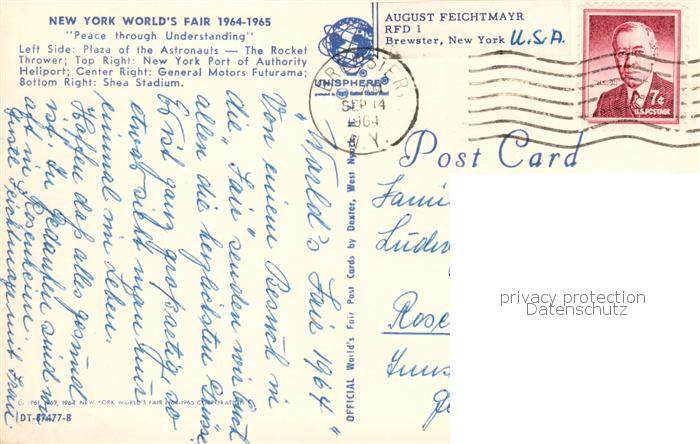 NEW YORK WORLD'S FAIR 1964-1965
"Peace through Understanding"
Left Side: Plaza of the Astronauts — The Rocket
Thrower; Top Right: New York Port of Authority
Heliport; Center Right: General Motors Futurama;
Bottom Right: Shea Stadium.
UNISPHERE®
AUGUST FEICHTMAYR
RFD 1
Brewster, New York U.S.A.
BREWSTER,
AM
SEP 14
1964
N.Y.
7¢
U.S. POSTAGE
Post Card
"World's Fair 1964"
Von einem Besuch in
die "Fair" senden wir Euch
allen die herzlichsten Grüsse
Es ist ganz großartig, so
etwas sieht man nur
einmal im Leben.
Hoffen daß alles gesund
ist. In Gedanken sind wir
oft in Rosenheim.
Feichtmayr mit Frau.
OFFICIAL World's Fair Post Cards by Dexter, West Nyack
Fami
Ludw
Rose
privacy protection
Datenschutz
© 1961, 1962, 1964 NEW YORK WORLD'S FAIR 1964-1965 CORPORATION
DT-87477-B